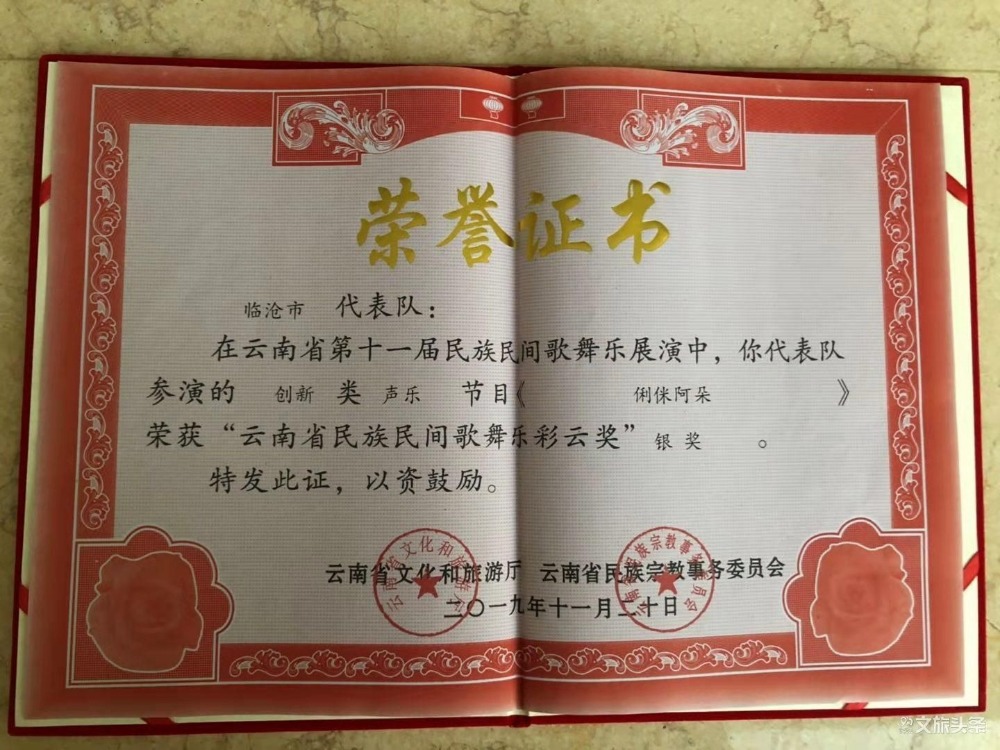 荣誉证书
临沧市 代表队：
在云南省第十一届民族民间歌舞乐展演中，你代表队
参演的 创新 类 声乐 节目《 俐侎阿朵 》
荣获“云南省民族民间歌舞乐彩云奖” 银奖 。
特发此证，以资鼓励。
云南省文化和旅游厅 云南省民族宗教事务委员会
二〇一九年十一月二十日
云南省文化和旅游厅
云南省民族宗教事务委员会
文旅头条